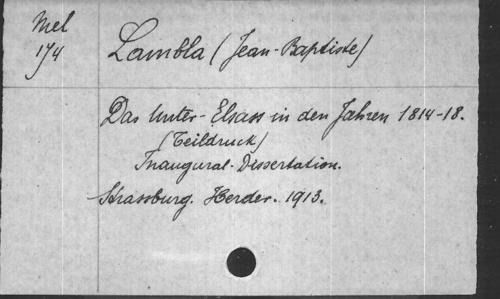 Mel
174
Lambla (Jean-Baptiste)
Das Unter-Elsass in den Jahren 1814-18.
(Teildruck)
Inaugural-Dissertation.
Strassburg. Herder. 1913.